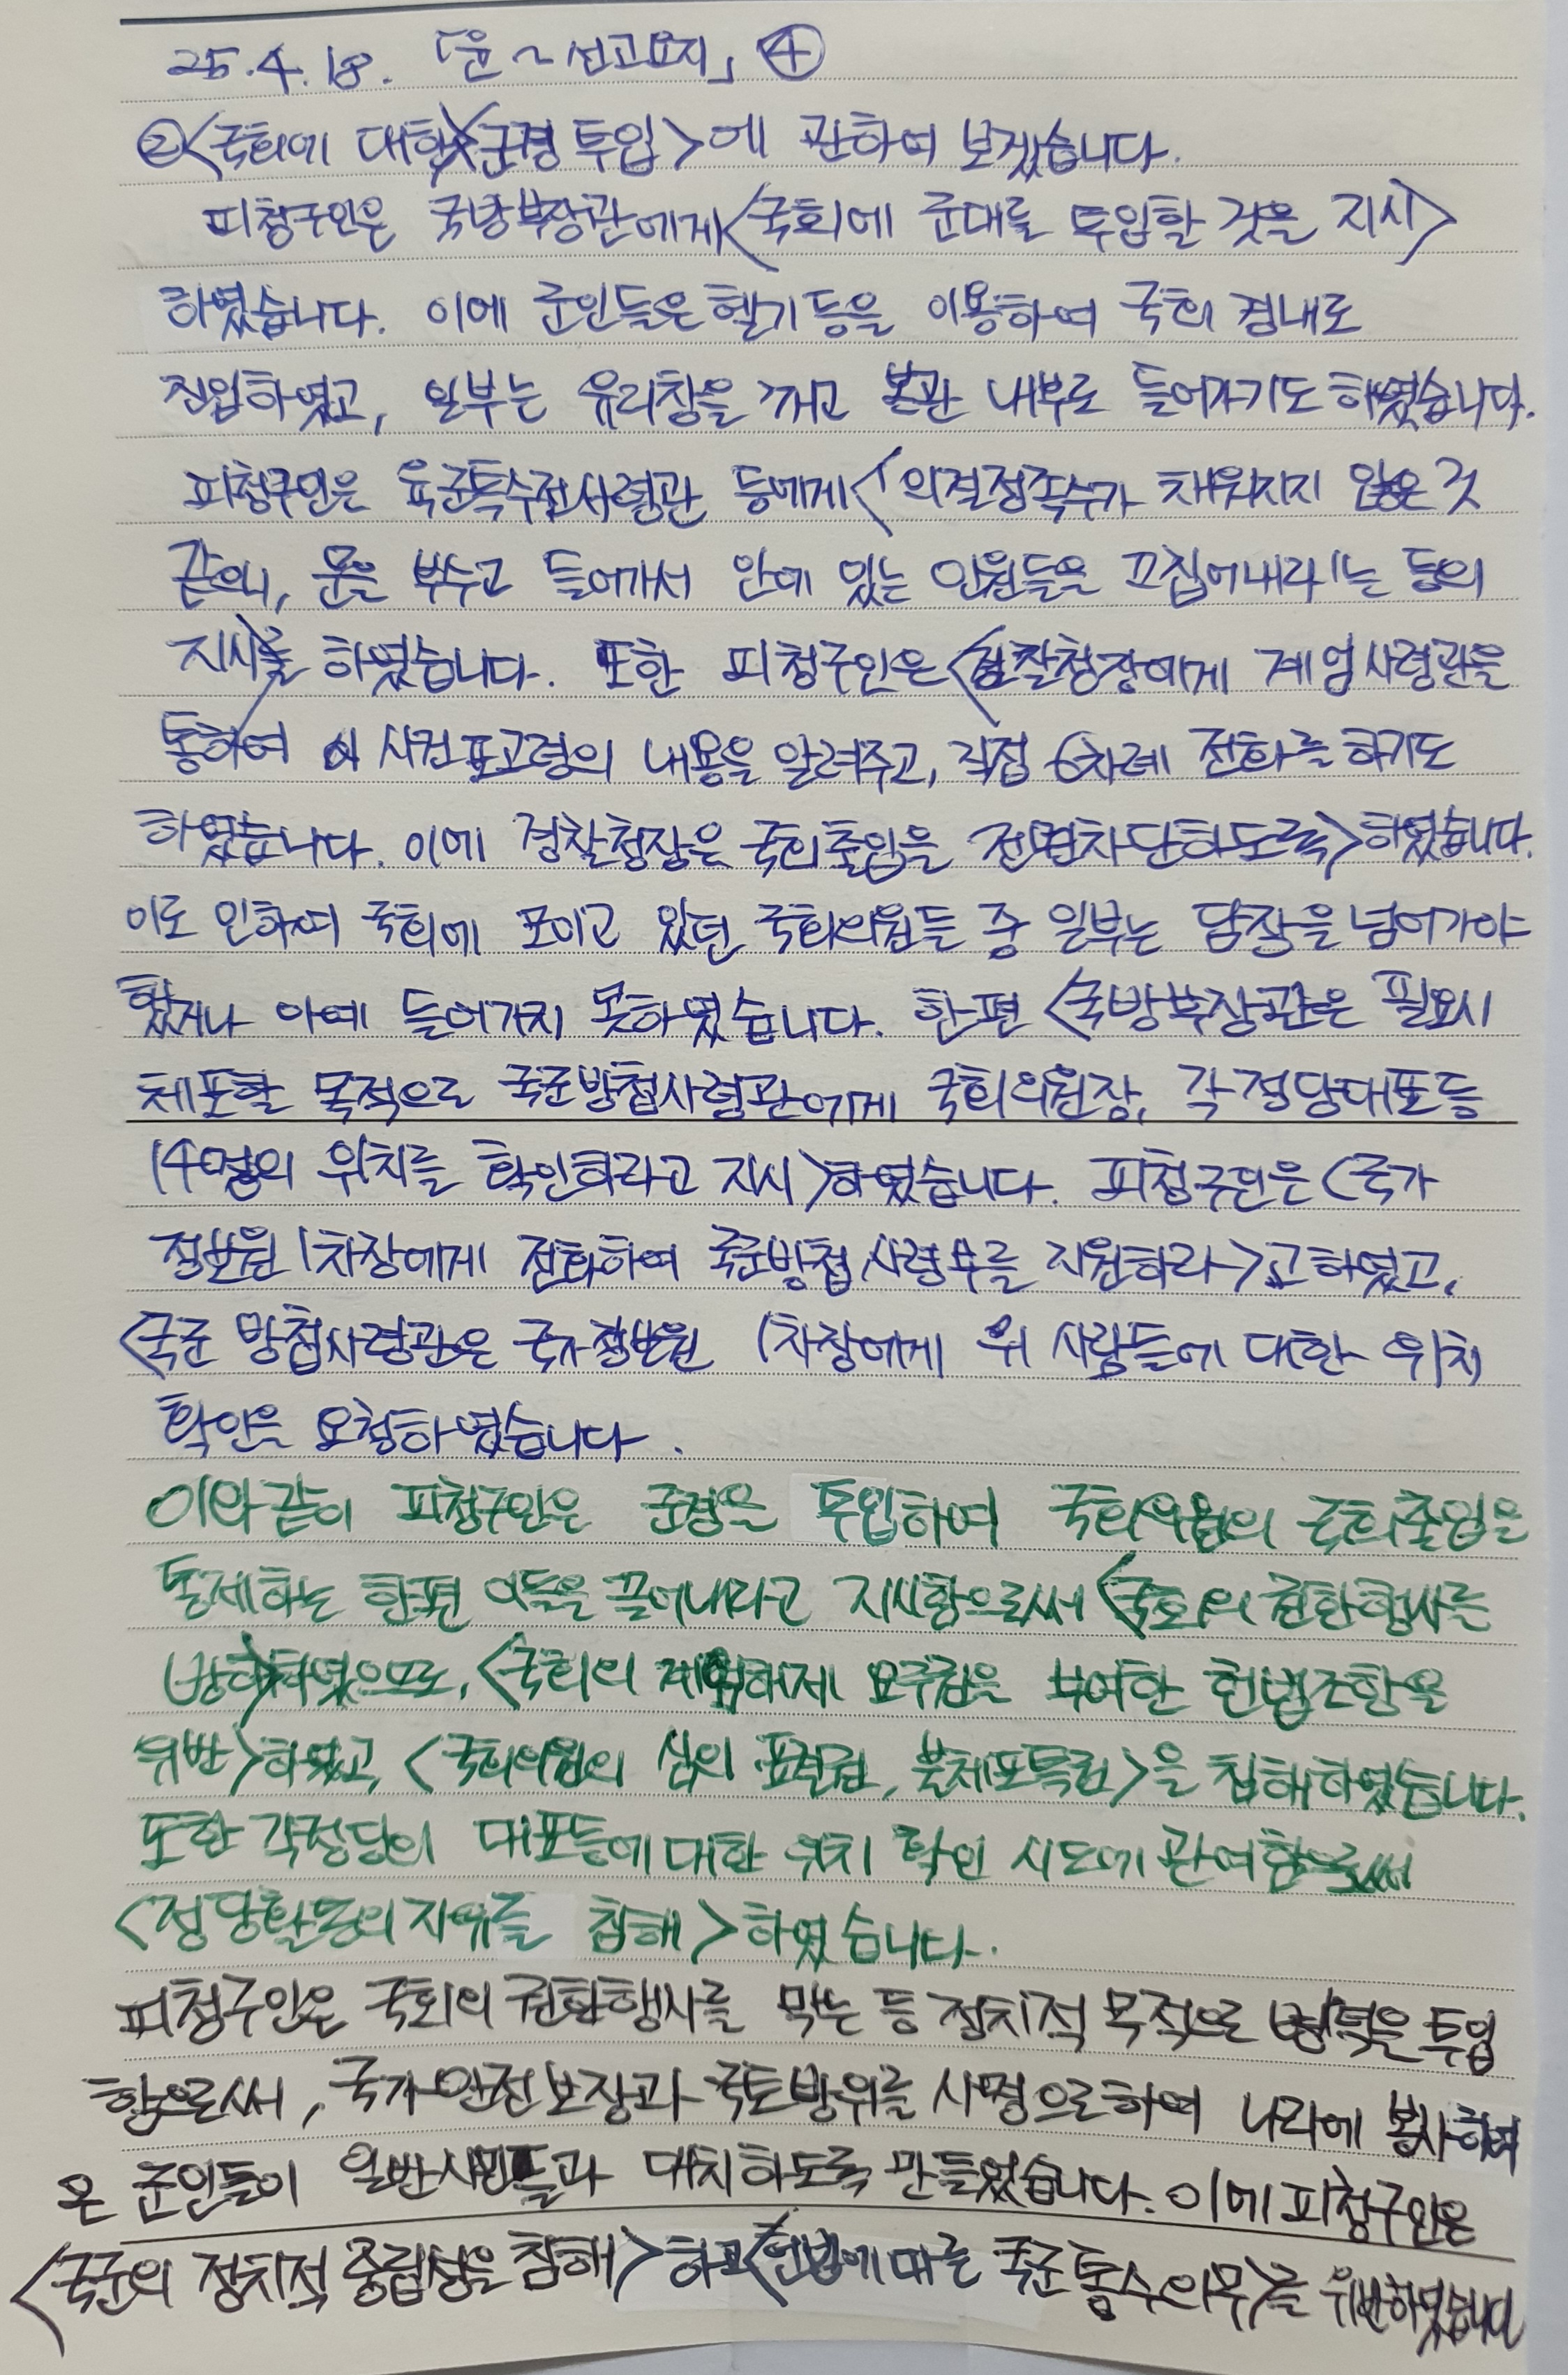 25.4.18. 「윤~선고요지」 ④
②<국회에 대한><군경 투입>에 관하여 보겠습니다.
피청구인은 국방부장관에게<국회에 군대를 투입할 것을 지시>
하였습니다. 이에 군인들은 헬기 등을 이용하여 국회 경내로
진입하였고, 일부는 유리창을 깨고 본관 내부로 들어가기도 하였습니다.
피청구인은 육군특수전사령관 등에게<'의결정족수가 채워지지 않은 것
같으니, 문을 부수고 들어가서 안에 있는 인원들을 끄집어내라'는 등의
지시>를 하였습니다. 또한 피청구인은<경찰청장에게 계엄사령관을
통하여 이 사건 포고령의 내용을 알려주고, 직접 6차례 전화를 하기도
하였습니다. 이에 경찰청장은 국회출입을 전면차단하도록>하였습니다.
이로 인하여 국회에 모이고 있던 국회의원들 중 일부는 담장을 넘어가야
했거나 아예 들어가지 못하였습니다. 한편 <국방부장관은 필요시
체포할 목적으로 국군방첩사령관에게 국회의원장, 각 정당대표 등
14명의 위치를 확인하라고 지시>하였습니다. 피청구인은 <국가
정보원 1차장에게 전화하여 국군방첩사령부를 지원하라>고 하였고,
<국군 방첩사령관은 국가정보원 1차장에게 위 사람들에 대한 위치
확인을 요청하였습니다.
이와 같이 피청구인은 군경을 투입하여 국회의원의 국회출입을
통제하는 한편 이들을 끌어내라고 지시함으로써 <국회의 권한행사를
방해>하였으므로, <국회의 계엄해제 요구권을 부여한 헌법조항을
위반>하였고, <국회의원의 심의 표결권, 불체포특권>을 침해하였습니다.
또한 각정당의 대표들에 대한 위치 확인 시도에 관여함으로써
<정당활동의 자유를 침해>하였습니다.
피청구인은 국회의 권한행사를 막는 등 정치적 목적으로 병력을 투입
함으로써, 국가안전보장과 국토방위를 사명으로하여 나라에 봉사하여
온 군인들이 일반시민들과 대치하도록 만들었습니다. 이에 피청구인은
<국군의 정치적 중립성을 침해>하고<헌법에 따른 국군통수의무>를 위반하였습니다